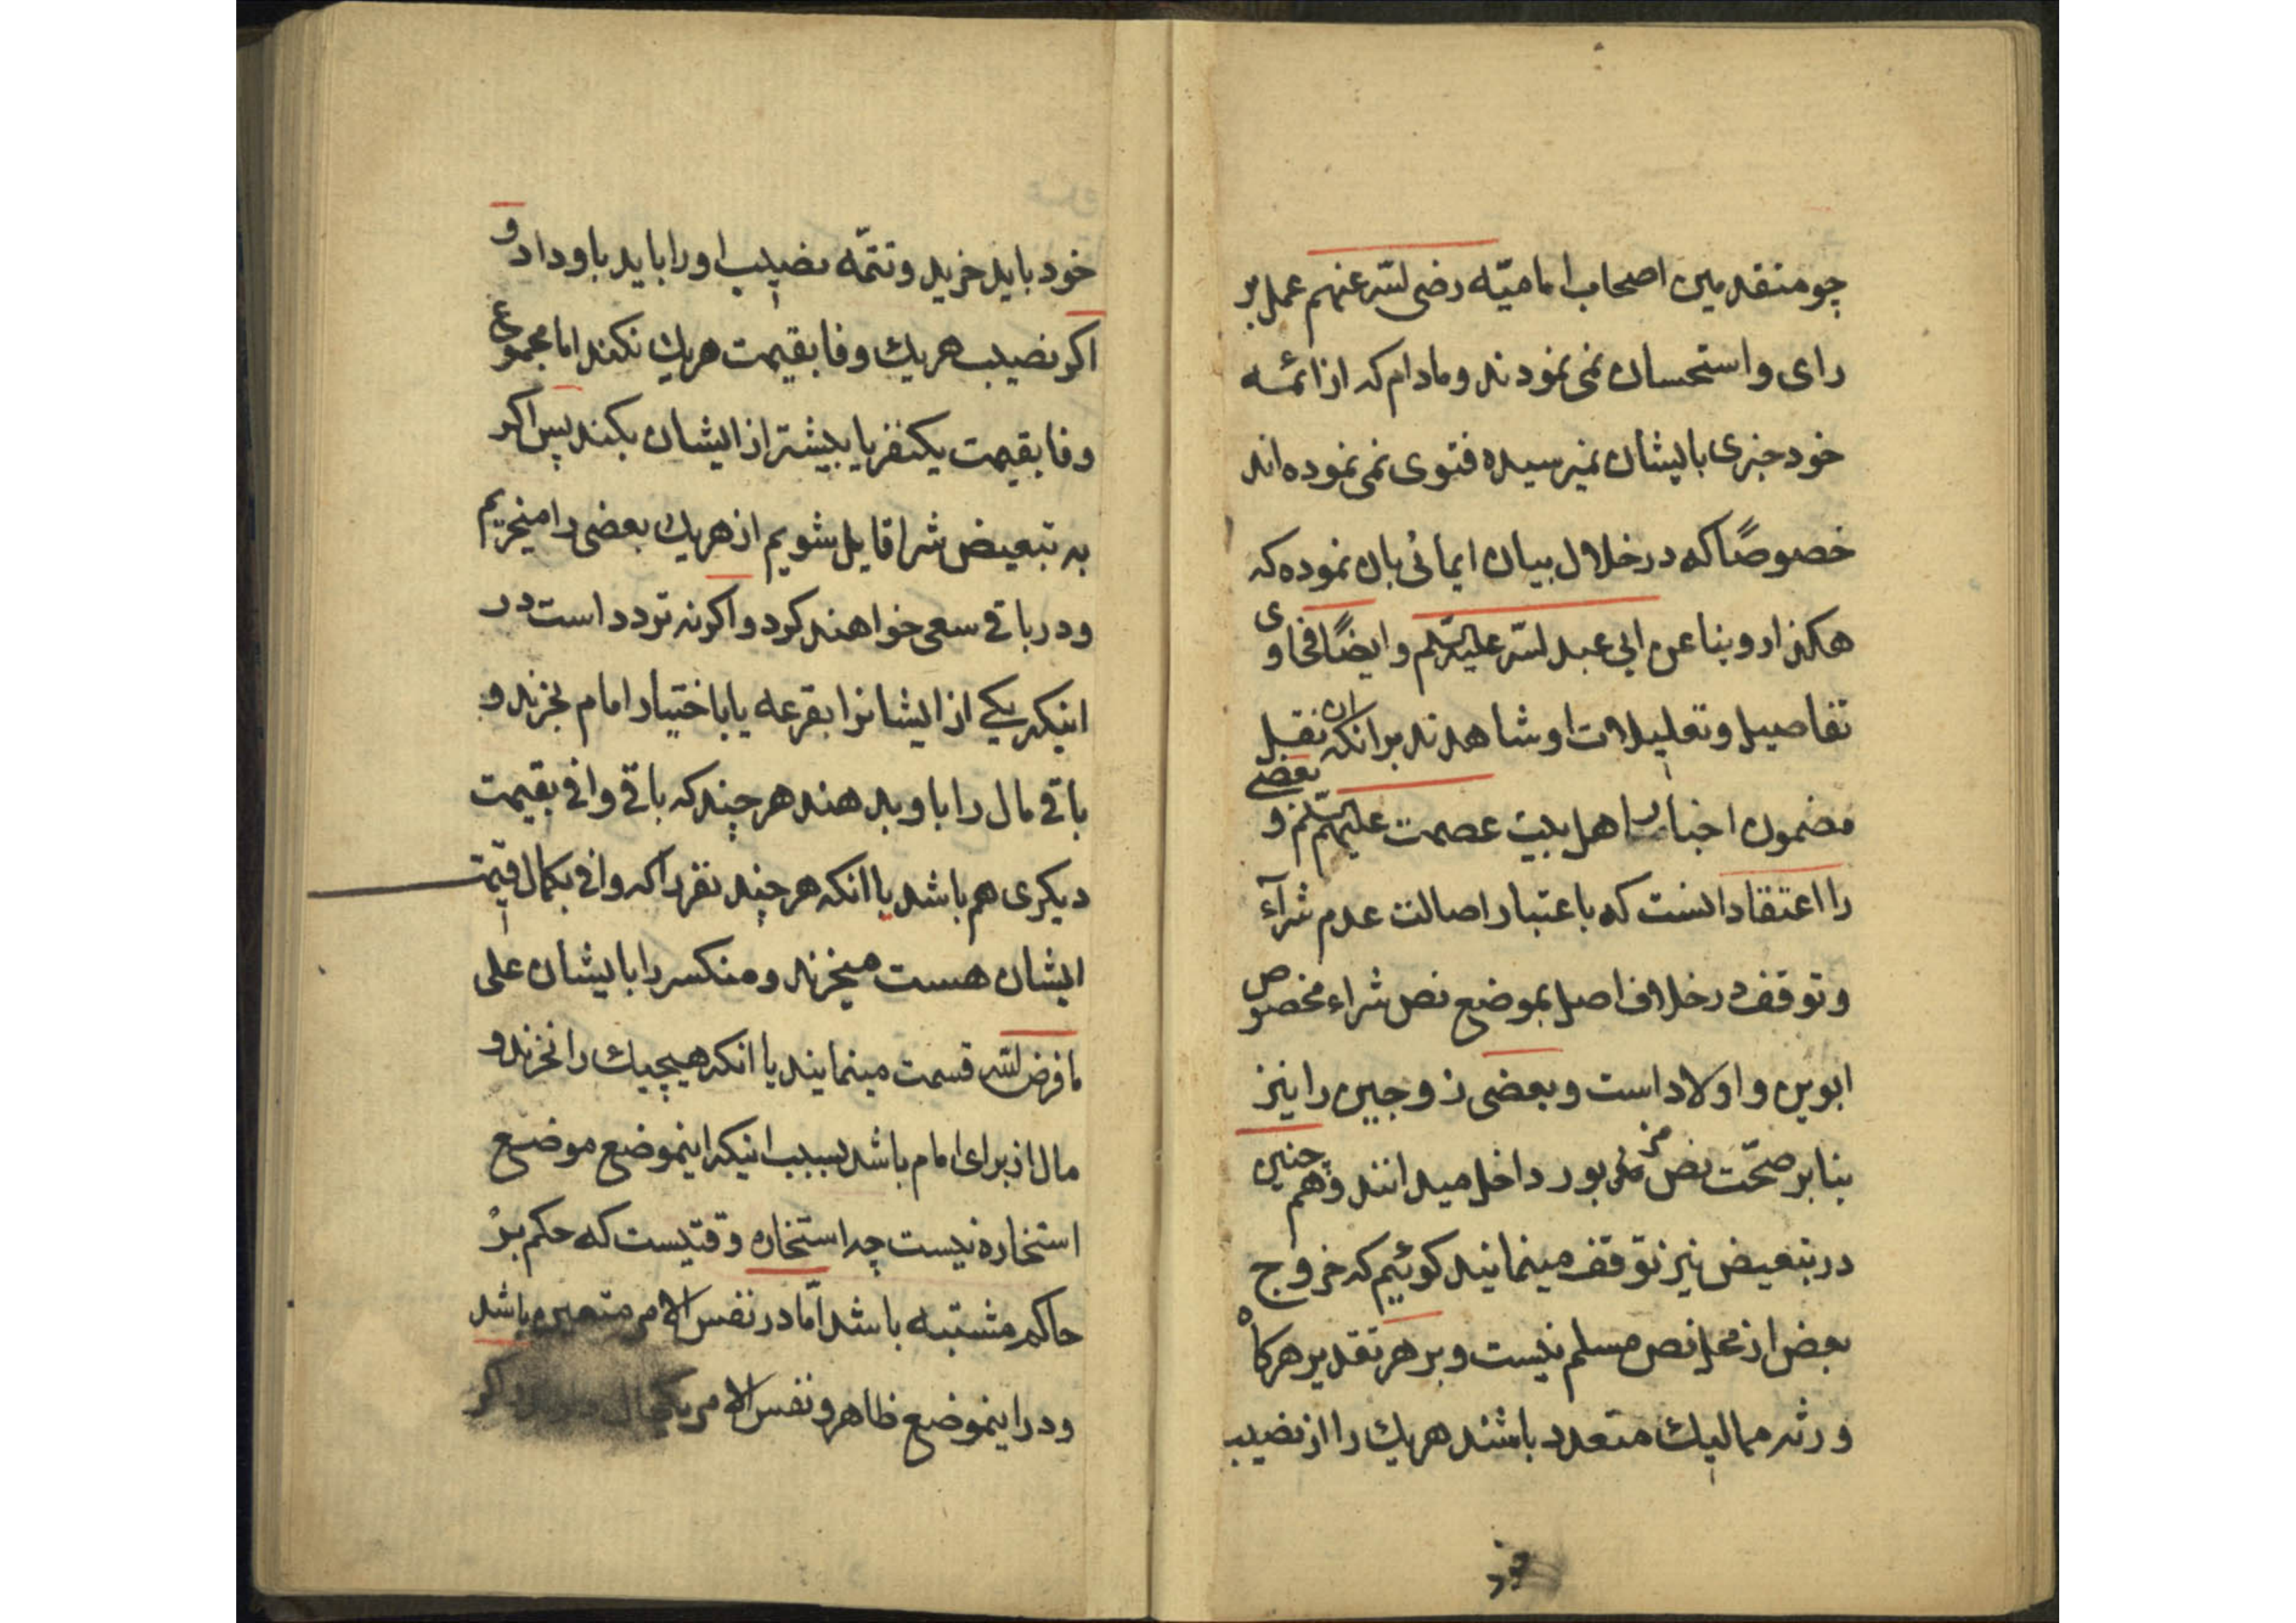 چو متقدمین اصحاب امامیّه رضی الله عنهم عمل بر
رای و استحسان نمی نمودند و مادام که از ائمه
خود خبری بایشان نمیرسیده فتوی نمی نموده اند
خصوصًا که در خلال بیان ایمائی بان نموده که
هکذا روینا عن ابی عبد الله علیه السلم و ایضًا فحاوی
تفاصیل و تعلیلات او شاهدند بر انکه ان نقل
مضمون اخبار اهل بیت عصمت علیهم السلم و بعضی
را اعتقاد انست که باعتبار اصالت عدم شرآء
و توقف در خلاف اصل بموضع نص شراء مخصوص
ابوین و اولاد است و بعضی زوجین را نیز
بنابر صحّت نص مزبور داخل میدانند و هم چنین
در تبعیض نیز توقف مینمایند کوئیم که خروج
بعض از محل نص مسلم نیست و بر هر تقدیر هرکاه
ورثه ممالیك متعدد باشند هریك را از نصیب
خود باید خرید و تتمّه نصیب او را باید باو داد و
اکر نصیب هریك وفا بقیمت هریك نکند اما مجموع
وفا بقیمت یکنفر یا بیشتر از ایشان بکند پس اکر
به تبعیض شرا قایل شویم از هریك بعضی را میخریم
و در باقی سعی خواهند کرد و اکر نه تردد است در
اینکه یکی از ایشانرا بقرعه یا باختیار امام بخرند و
باقی مال را باو بدهند هر چند که باقی وافی بقیمت
دیکری هم باشد یا انکه هر چند نفر را که وافی بکمال قیمت
ایشان هست میخرند و منکسر را بایشان علی
ما فرض الله قسمت مینمایند یا انکه هیچیك را نخرند و
مال از برای امام باشد بسبب اینکه اینموضع موضع
استخاره نیست چه استخاره وقتیست که حکم بر
حاکم مشتبه باشد امّا در نفس الامر متعین باشد
و در اینموضع ظاهر و نفس الامر یکحال اکر